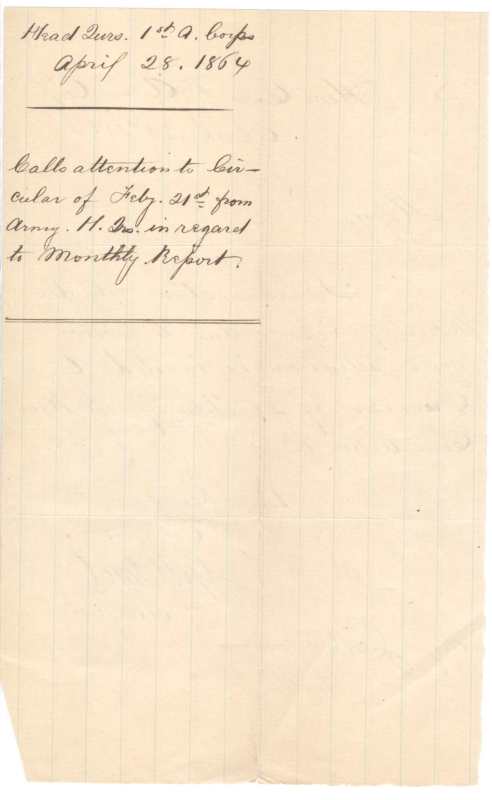 Head Qurs. 1st A. Corps
April 28. 1864
Calls attention to Cir-
cular of Feby. 21st from
Army. H. Qrs. in regard
to Monthly Report.